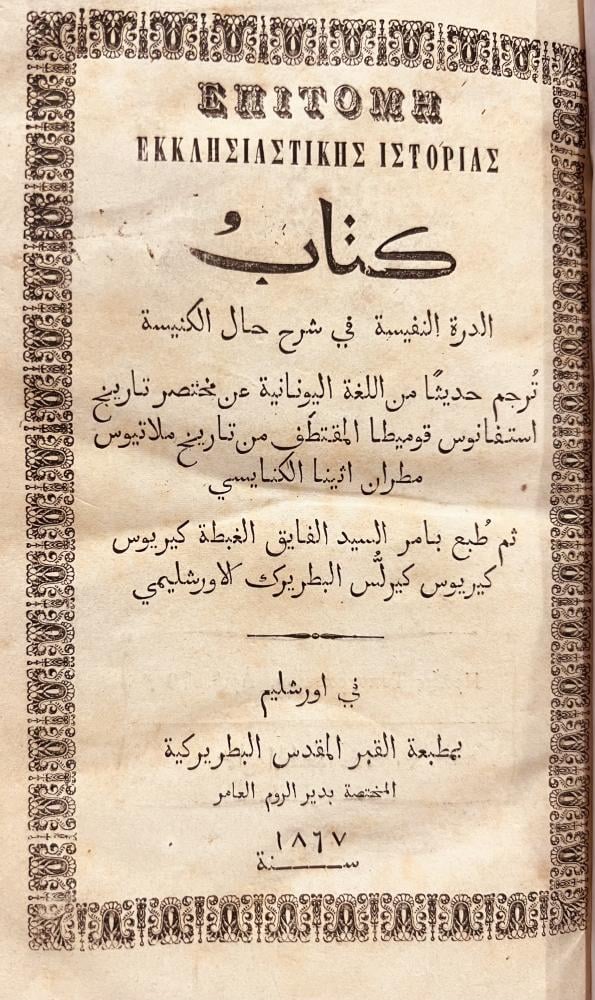 ΕΠΙΤΟΜΗ
ΕΚΚΛΗΣΙΑΣΤΙΚΗΣ ΙΣΤΟΡΙΑΣ
كتابُ
الدرة النفيسة في شرح حال الكنيسة
تُرجم حديثًا من اللغة اليونانية عن مختصر تاريخ
استفانوس قوميطا المقتطَف من تاريخ ملاتيوس
مطران اثينا الكنايسي
ثم طُبع بامر السيد الفايق الغبطة كيريوس
كيريوس كيرلُّس البطريرك الاورشليمي
في اورشليم
بمطبعة القبر المقدس البطريركية
المختصة بدير الروم العامر
١٨٦٧
سنة